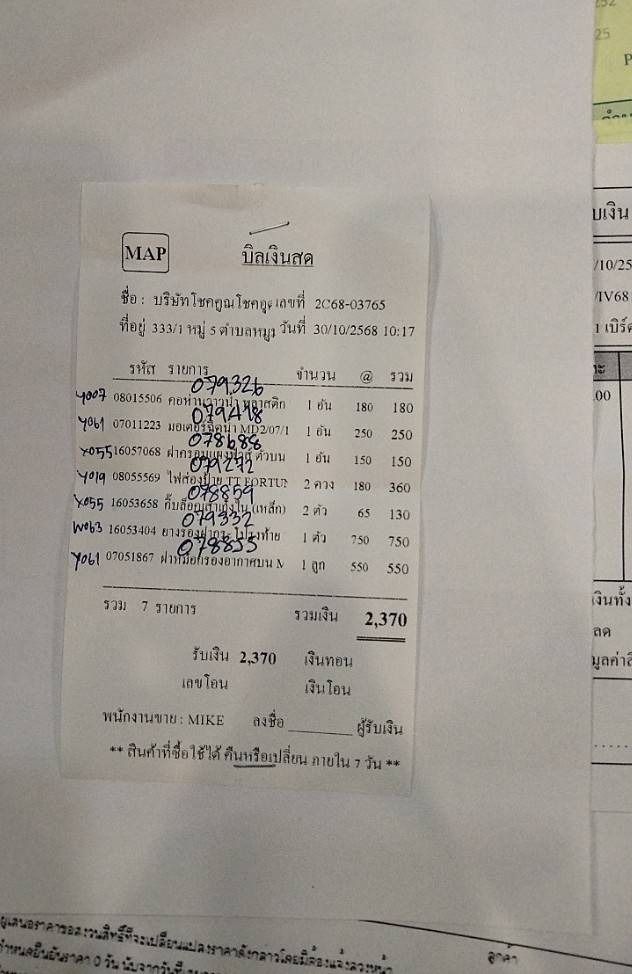 MAP
บิลเงินสด
ชื่อ : บริษัทโชคคูณโชคอุ เลขที่ 2C68-03765
ที่อยู่ 333/1 หมู่ 5 ตำบลหมู วันที่ 30/10/2568 10:17
รหัส รายการ จำนวน @ รวม
079326
Y007 08015506 พลาสติก 1 อัน 180 180
079498
Y061 07011223 MD2/07/1 1 อัน 250 250
078688
X055 16057068 ตัวบน 1 อัน 150 150
079292
Y019 08055569 TT FORTU 2 ดวง 180 360
078859
X055 16053658 (เหล็ก) 2 ตัว 65 130
079332
W063 16053404 1 ตัว 750 750
078855
Y061 07051867 ฝาหม้อกรองอากาศบน M 1 ลูก 550 550
รวม 7 รายการ รวมเงิน 2,370
รับเงิน 2,370 เงินทอน
เลขโอน เงินโอน
พนักงานขาย : MIKE ลงชื่อ ผู้รับเงิน
** สินค้าที่ซื้อไปใช้ได้ คืนหรือเปลี่ยน ภายใน 7 วัน **
25
P
/10/25
/IV68
.00
ลด
ลูกค้า